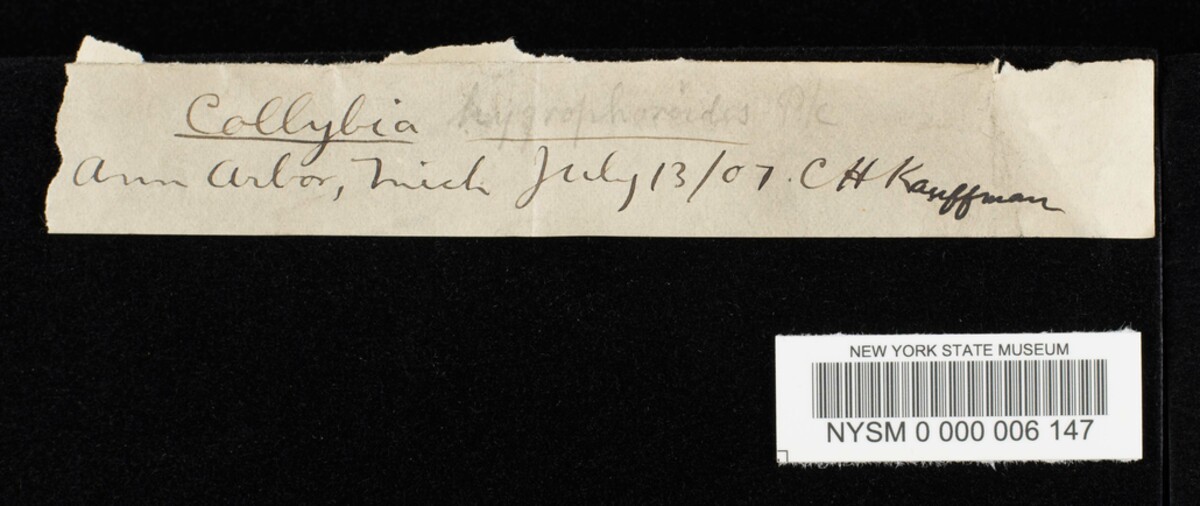 Collybia hygrophoroides Pk
Ann Arbor, Mich July 13/07. C H Kauffman
NEW YORK STATE MUSEUM
NYSM 0 000 006 147